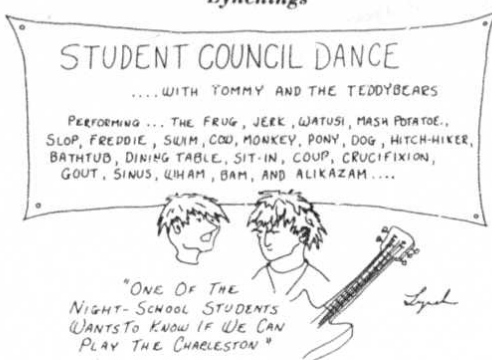 Lynchings
STUDENT COUNCIL DANCE
....WITH TOMMY AND THE TEDDYBEARS
PERFORMING ... THE FRUG, JERK, WATUSI, MASH POTATOE.,
SLOP, FREDDIE, SWIM, COW, MONKEY, PONY, DOG, HITCH-HIKER,
BATHTUB, DINING TABLE, SIT-IN, COUP, CRUCIFIXION,
GOUT, SINUS, WHAM, BAM, AND ALIKAZAM....
"ONE OF THE
NIGHT-SCHOOL STUDENTS
WANTS TO KNOW IF WE CAN
PLAY THE CHARLESTON"
Lynch